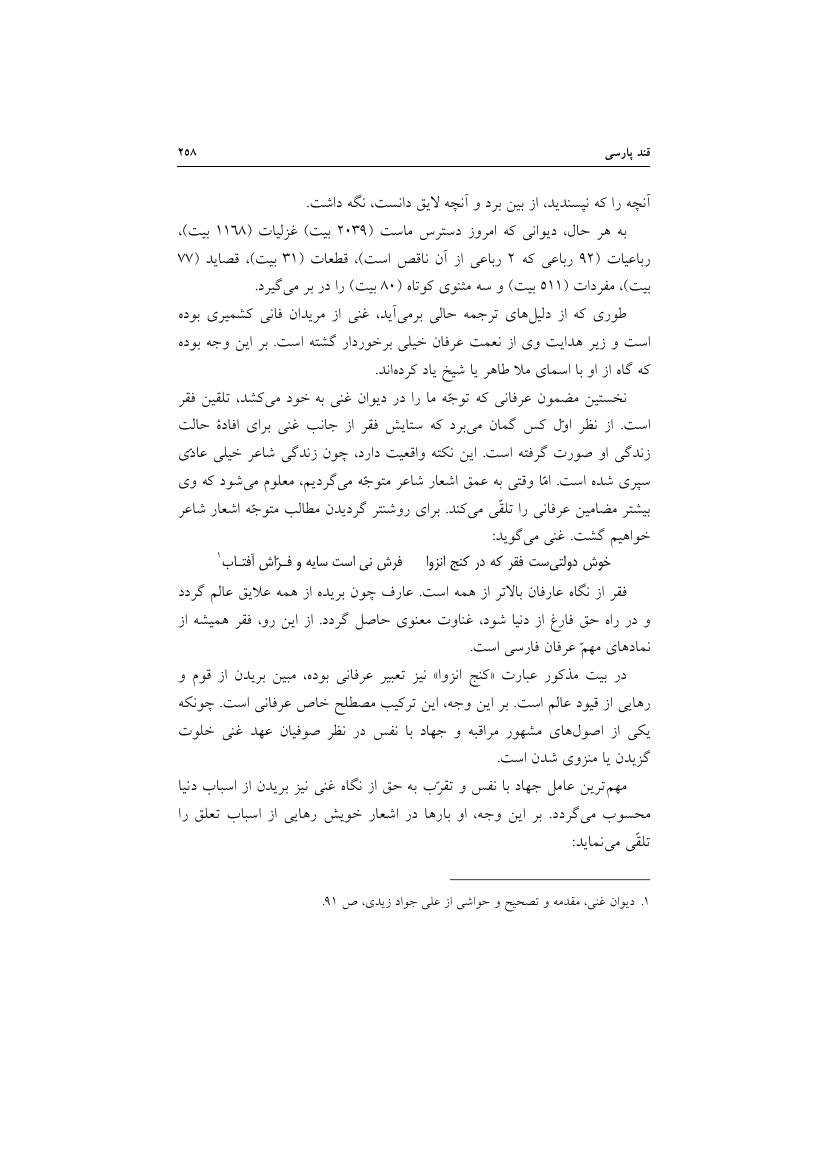 قند پارسی ۲۵۸
آنچه را که نپسندید، از بین برد و آنچه لایق دانست، نگه داشت.
به هر حال، دیوانی که امروز دسترس ماست (۲۰۳۹ بیت) غزلیات (۱۱۶۸ بیت)،
رباعیات (۹۲ رباعی که ۲ رباعی از آن ناقص است)، قطعات (۳۱ بیت)، قصاید (۷۷
بیت)، مفردات (۵۱۱ بیت) و سه مثنوی کوتاه (۸۰ بیت) را در بر می‌گیرد.
طوری که از دلیل‌های ترجمه حالی برمی‌آید، غنی از مریدان فانی کشمیری بوده
است و زیر هدایت وی از نعمت عرفان خیلی برخوردار گشته است. بر این وجه بوده
که گاه از او با اسمای ملا طاهر یا شیخ یاد کرده‌اند.
نخستین مضمون عرفانی که توجّه ما را در دیوان غنی به خود می‌کشد، تلقین فقر
است. از نظر اوّل کس گمان می‌برد که ستایش فقر از جانب غنی برای افادهٔ حالت
زندگی او صورت گرفته است. این نکته واقعیت دارد، چون زندگی شاعر خیلی عادّی
سپری شده است. امّا وقتی به عمق اشعار شاعر متوجّه می‌گردیم، معلوم می‌شود که وی
بیشتر مضامین عرفانی را تلقّی می‌کند. برای روشنتر گردیدن مطالب متوجّه اشعار شاعر
خواهیم گشت. غنی می‌گوید:
خوش دولتی‌ست فقر که در کنج انزوا فرش نی است سایه و فـرّاش آفتـاب۱
فقر از نگاه عارفان بالاتر از همه است. عارف چون بریده از همه علایق عالم گردد
و در راه حق فارغ از دنیا شود، غناوت معنوی حاصل گردد. از این رو، فقر همیشه از
نمادهای مهمّ عرفان فارسی است.
در بیت مذکور عبارت «کنج انزوا» نیز تعبیر عرفانی بوده، مبین بریدن از قوم و
رهایی از قیود عالم است. بر این وجه، این ترکیب مصطلح خاص عرفانی است. چونکه
یکی از اصول‌های مشهور مراقبه و جهاد با نفس در نظر صوفیان عهد غنی خلوت
گزیدن یا منزوی شدن است.
مهم‌ترین عامل جهاد با نفس و تقرّب به حق از نگاه غنی نیز بریدن از اسباب دنیا
محسوب می‌گردد. بر این وجه، او بارها در اشعار خویش رهایی از اسباب تعلق را
تلقّی می‌نماید:
۱. دیوان غنی، مقدمه و تصحیح و حواشی از علی جواد زیدی، ص ۹۱.